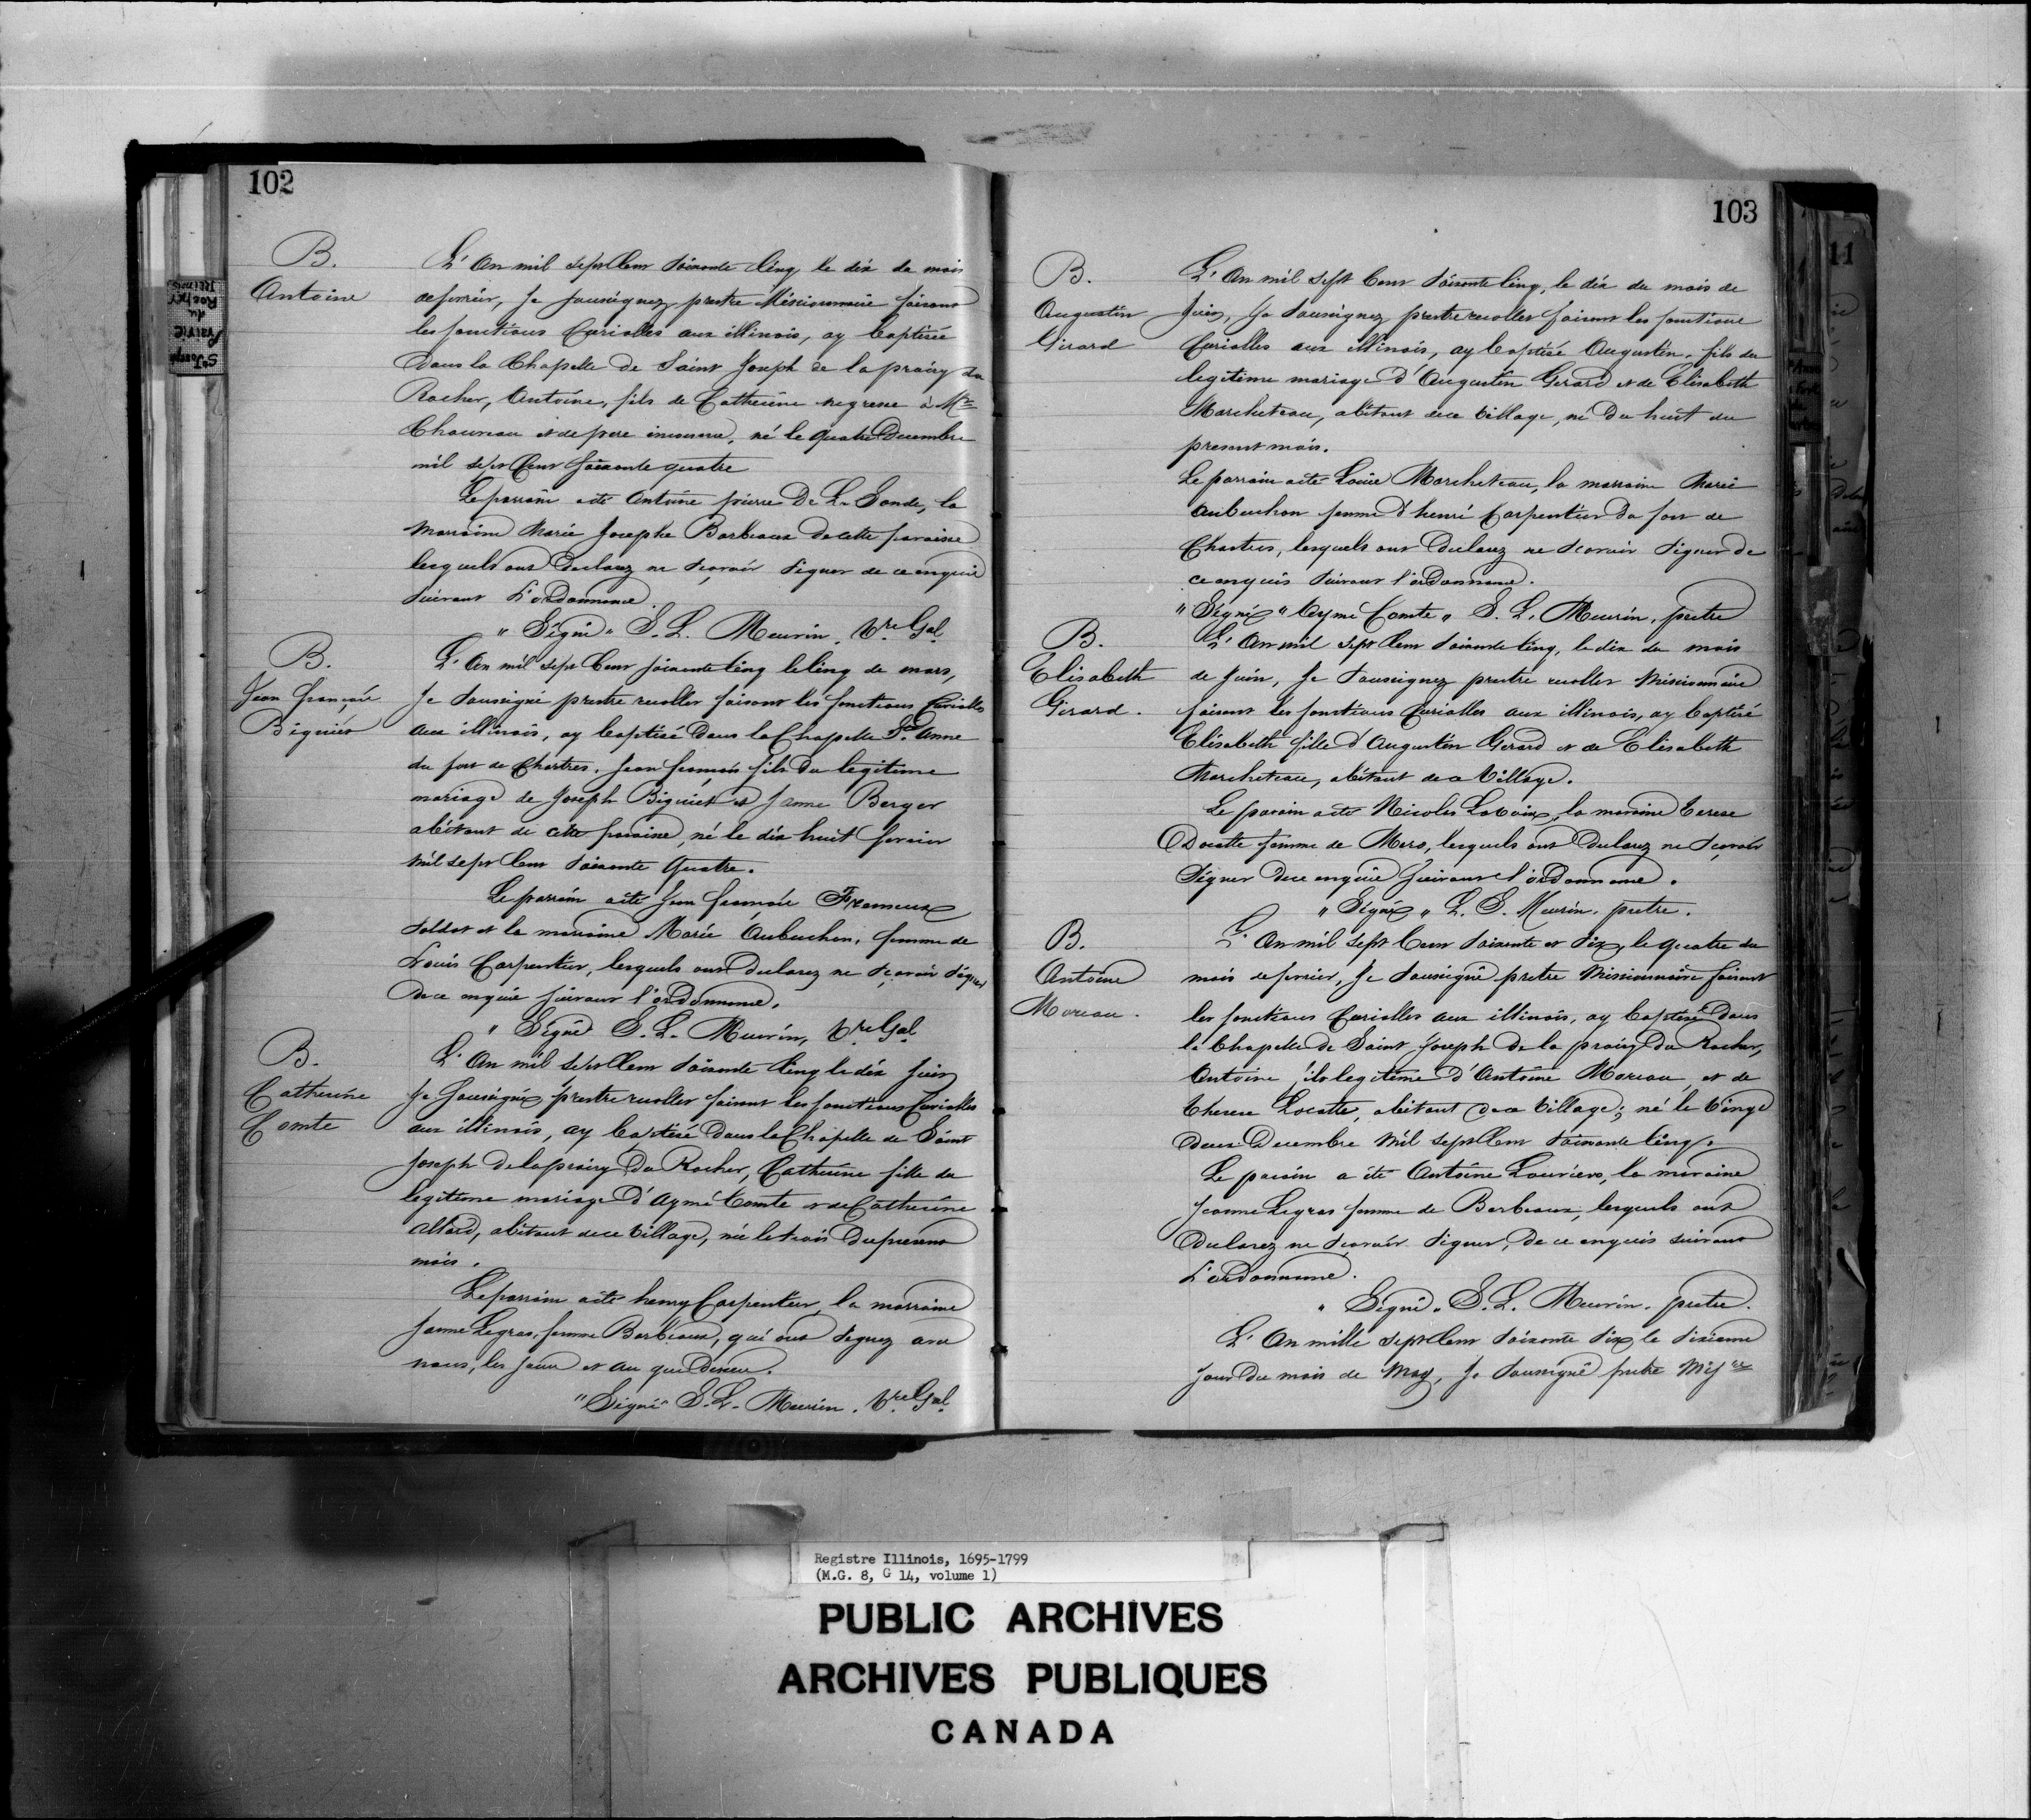 102
B.
Antoine
L'An mil sept Cent soixante cinq le dix du mois
de fevrier, Je soussignez prestre Missionnaire faisant
les fonctions Curialles aux illinois, ay baptisée
dans la Chapelle de Saint Joseph de la prairy du
Rocher, Antoine, fils de Catherine negresse à Mr
Chauveau et de pere inconnu, né le quatre Decembre
mil sept Cent soixante quatre
Le parrain a été Antoine pierre De La Sonde, la
marraine Marie Josephe Barbeaux de cette paroisse
lesquels ont Declarez ne scavoir signer de ce enquis
suivant L'ordonnance.
"Signé" S. L. Meurin, V.re Gal.
B.
Jean françois
Biguiés
L'An mil sept Cent soixante cinq le cinq de mars,
Je soussigné prestre recollet faisant les fonctions Curialles
aux illinois, ay baptisé dans la Chapelle Ste Anne
du fort de Chartres, Jean françois fils du legitime
mariage de Joseph Biguiet et Jeanne Berger
abitant de cette paroisse, né le dix huit fevrier
mil sept Cent soixante Quatre.
Le parrain a été Jean françois
soldat et la marraine Marie Aubuchon, femme de
Louis Carpentier, lesquels ont Declarez ne scavoir signer
de ce enquis suivant l'ordonnance.
"Signé S. L. Meurin, V.re Gal.
B.
Catherine
Comte
L'An mil sept Cent soixante cinq le dix Juin
Je soussignéz prestre recollet faisant les fonctions Curialles
aux illinois, ay baptisé dans la Chapelle de Saint
Joseph de la prairy du Rocher, Catherine fille du
legitime mariage d'Aymé Comte et de Catherine
Allard, abitant de ce village, née le trois du present
mois.
Le parrain a été henry Carpentier, la marraine
Janne Legras, femme Barbeaux, qui ont signez avec
nous, les jour et an que dessus.
"Signé" S. L. Meurin. V.re Gal.
103
B.
Augustin
Girard
L'An mil sept Cent soixante cinq, le dix du mois de
Juin, Je soussignez prestre recollet faisant les fonctions
Curialles aux illinois, ay baptisé Augustin, fils du
legitime mariage d'Augustin Gerard et de Elisabeth
Marcheteau, abitant de ce village, né du huit du
present mois.
Le parrain a été Louis Marcheteau, la marraine Marie
Aubuchon femme d'henri Carpentier du fort de
Chartres, lesquels ont Declarez ne scavoir signer de
ce enquis suivant l'ordonnance.
"Signéz" Aymé Comte, S. L. Meurin, pretre
B.
Elisabeth
Girard.
L'An mil sept Cent soixante cinq, le dix du mois
de Juin, Je soussignez prestre recollet Missionnaire
faisant les fonctions Curialles aux illinois, ay baptisé
Elisabeth fille d'Augustin Gerard et de Elisabeth
Marcheteau, abitant de ce village.
Le parain a été Nicolas, la maraine Terese
femme de Moro, lesquels ont Declarez ne scavoir
signer de ce enquis suivant l'ordonnance.
"Signéz" L. S. Meurin. pretre.
B.
Antoine
Moreau.
L'An mil sept Cent soixante et six, le quatre du
mois de fevrier, Je soussigné pretre Missionnaire faisant
les fonctions Curialles aux illinois, ay baptisé dans
la Chapelle de Saint Joseph de la prairy du Rocher,
Antoine fils legitime d'Antoine Moreau, et de
Therese, abitant de ce village; né le vingt
deux Decembre mil sept Cent soixante cinq.
Le parain a été Antoine Louviers, la maraine
Jeanne Legras femme de Barbeaux, lesquels ont
Declarez ne scavoir signer, de ce enquis suivant
L'ordonnance.
"Signé" S. L. Meurin. pretre.
L'An mille sept Cent soixante six le sixieme
jour du mois de may, Je soussigné pretre
Registre Illinois, 1695-1799
(M.G. 8, G 14, volume 1)
PUBLIC ARCHIVES
ARCHIVES PUBLIQUES
CANADA